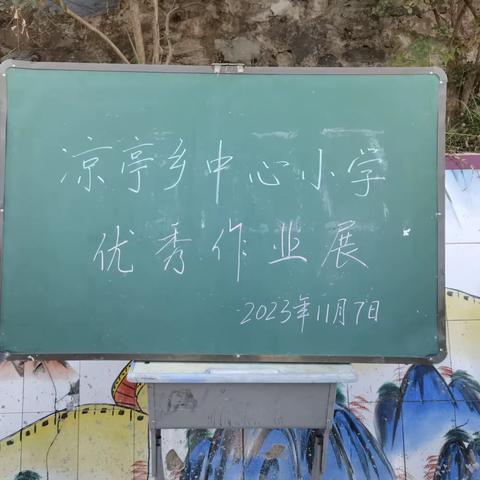 凉亭乡中心小学
优秀作业展
2023年11月7日